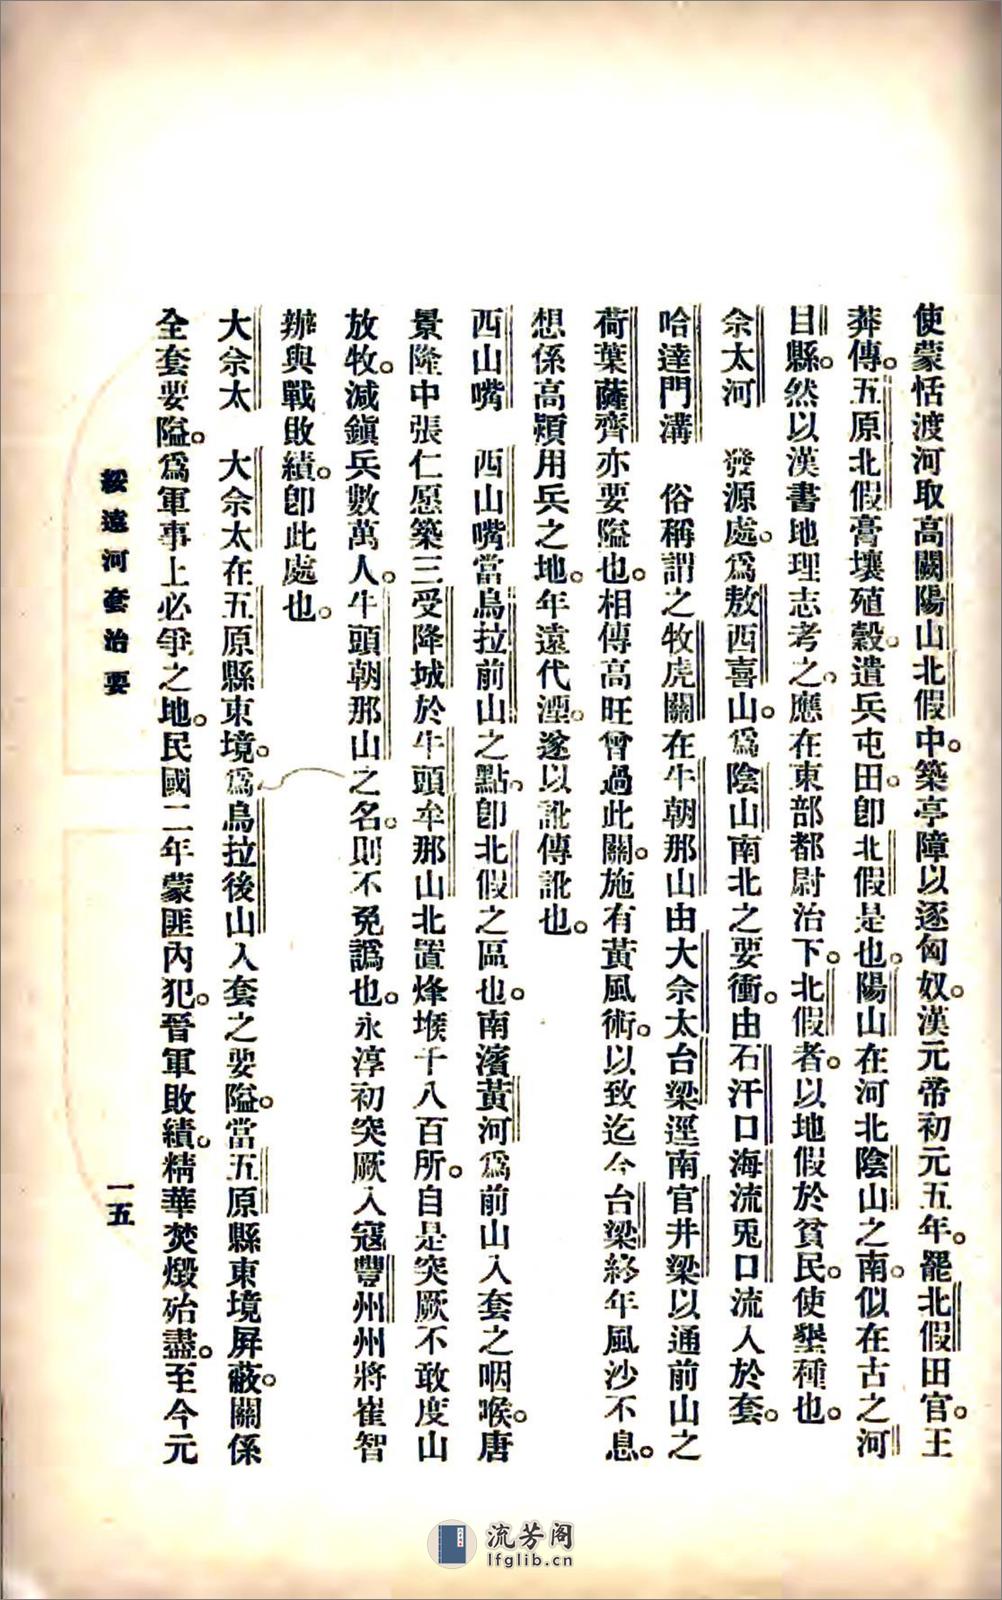 使蒙恬渡河取高闕陽山北假中。築亭障以逐匈奴。漢元帝初元五年。罷北假田官。王
莽傳。五原北假膏壤殖穀。遣兵屯田。卽北假是也。陽山在河北陰山之南。似在古之河
目縣。然以漢書地理志考之。應在東部都尉治下。北假者。以地假於貧民。使墾種也。
佘太河　發源處。爲敖西喜山。爲陰山南北之要衝。由石汗口海流兎口流入於套。
哈達門溝　俗稱謂之牧虎關在牛朝那山由大佘太台梁逕南官井梁以通前山之
荷葉薩齊亦要隘也。相傳高旺曾過此關。施有黃風術。以致迄今台梁終年風沙不息。
想係高熲用兵之地。年遠代湮。遂以訛傳訛也。
西山嘴　西山嘴當烏拉前山之點。卽北假之區也。南濱黃河爲前山入套之咽喉。唐
景隆中張仁愿築三受降城於牛頭牟那山北置烽堠千八百所。自是突厥不敢度山
放牧。減鎭兵數萬人。牛頭朝那山之名。則不免譌也。永淳初突厥入寇豐州州將崔智
辦與戰敗績。卽此處也。
大佘太　大佘太在五原縣東境。爲烏拉後山入套之要隘。當五原縣東境屏蔽。關係
全套要隘。爲軍事上必爭之地。民國二年蒙匪內犯。晉軍敗績。精華焚燬殆盡。至今元
綏遠河套治要
一五
流芳阁
lfglib.cn